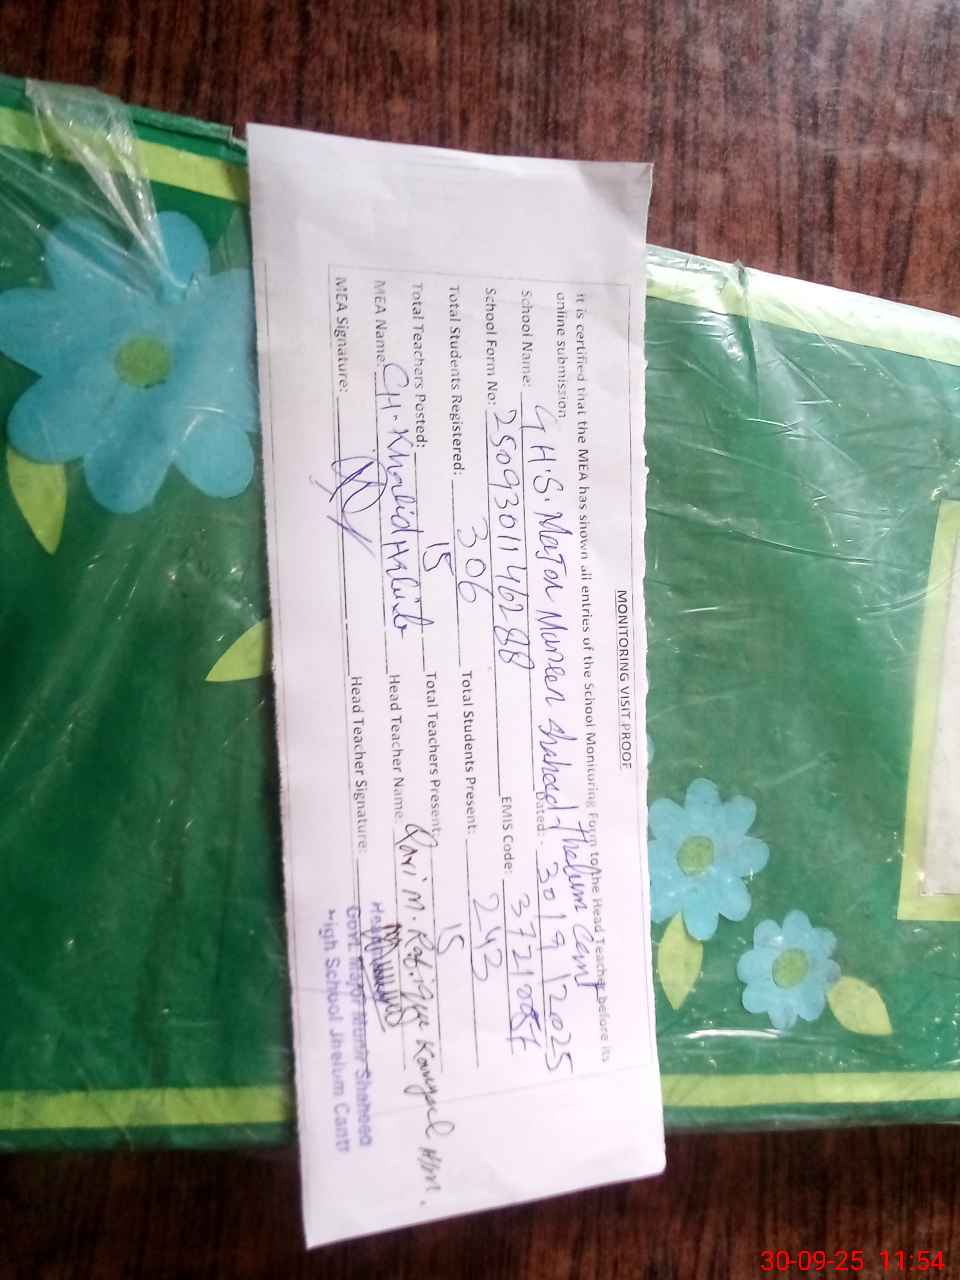 MONITORING VISIT PROOF
It is certified that the MEA has shown all entries of the School Monitoring Form to the Head Teacher before its
online submission.
School Name: G.H.S. Major Muneer Shaheed Jhelum Cant Dated: 30/9/2025
School Form No: 2509301146288 EMIS Code:
Total Students Registered: 306 Total Students Present: 243
Total Teachers Posted: 15 Total Teachers Present: 15
MEA Name: CH. Khalid Head Teacher Name: Qari M. Rafique
MEA Signature: Head Teacher Signature:
Govt. Major Munir Shaheed
High School Jhelum Cantt
30-09-25 11:54